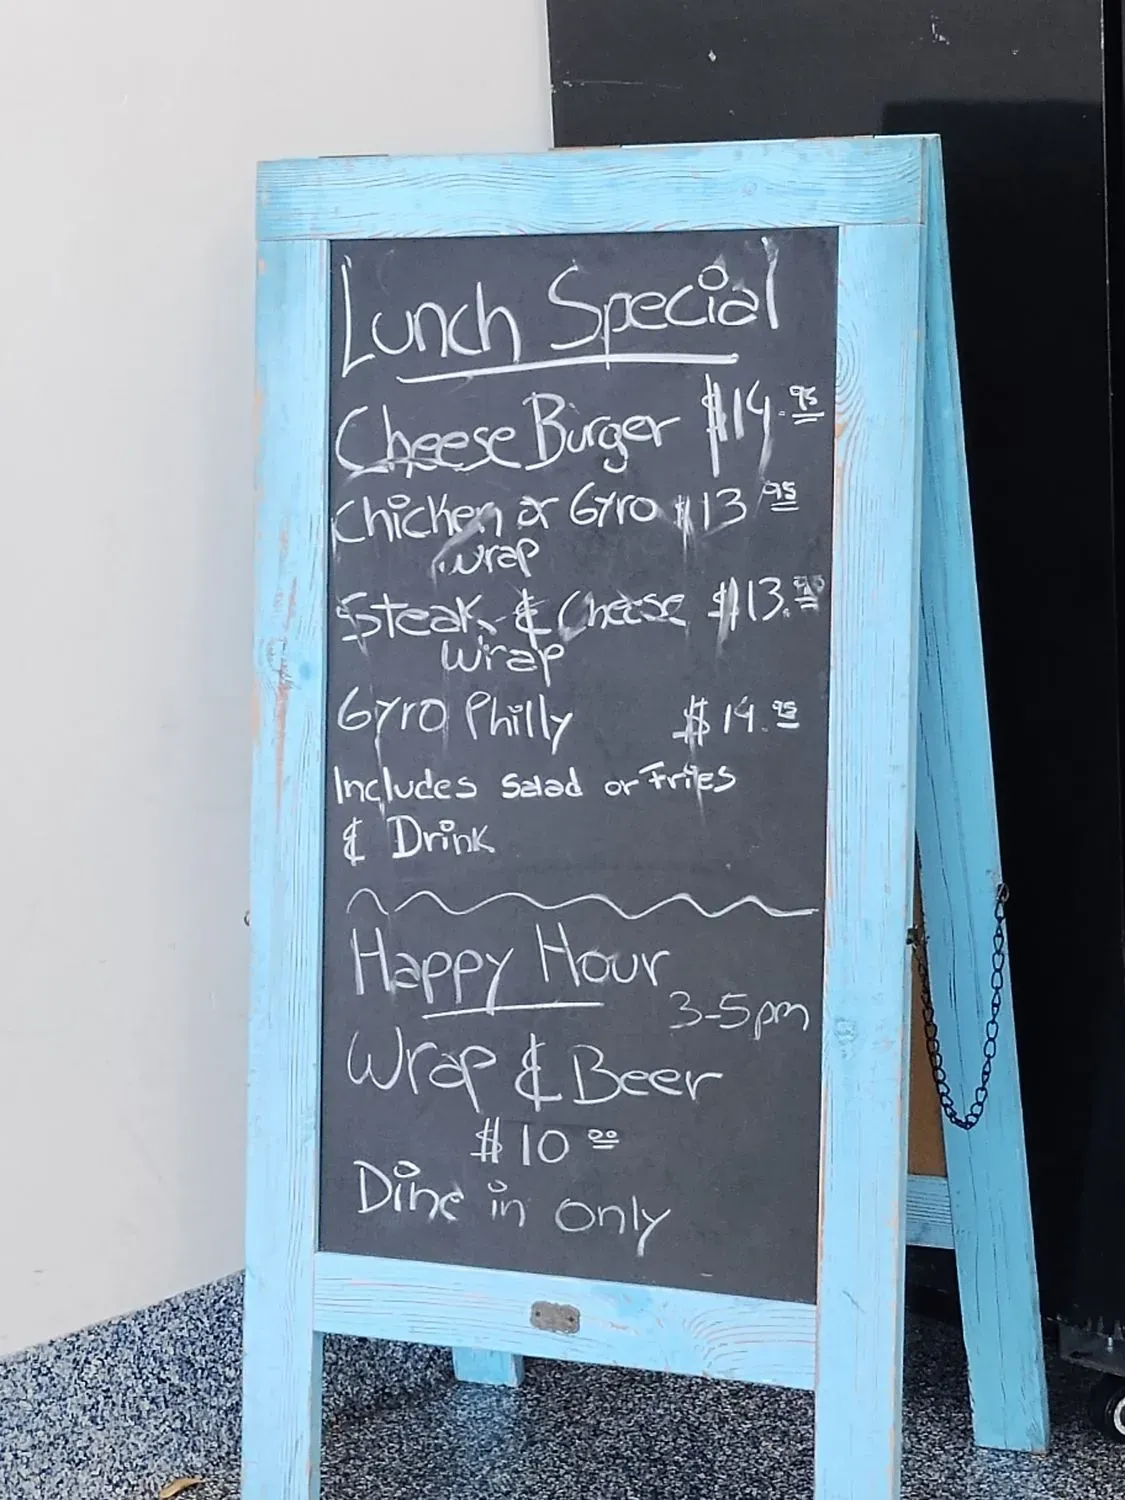 Lunch Special
Cheese Burger $14.95
Chicken or Gyro $13 95
wrap
Steak & Cheese $13.
wrap
Gyro Philly $14.95
Includes Salad or Fries
& Drink
Happy Hour
3-5pm
Wrap & Beer
$10 00
Dine in only